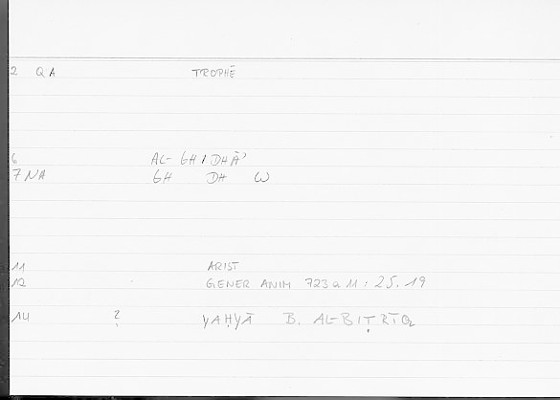 2 QA TROPHĒ
6 AL-GHIDHĀ'
7 NA GH DH W
11 ARIST
12 GENER ANIM 723a11: 25.19
14 ? YAḤYĀ B. AL-BIṬRĪQ